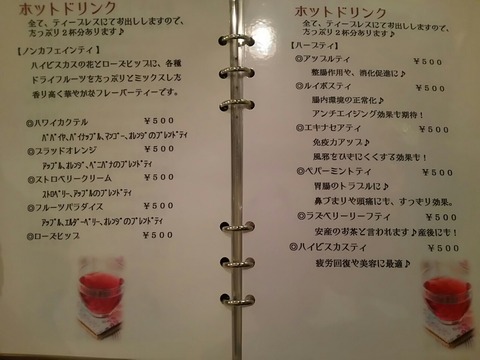 ホットドリンク
全て、ティープレスにてお出ししますので、
たっぷり2杯分あります♪
【ノンカフェインティ】
ハイビスカスの花とローズヒップに、各種
ドライフルーツをたっぷりとミックスした
香り高く華やかなフレーバーティーです。
◎ハワイカクテル ¥500
パパイヤ、パイナップル、マンゴー、オレンジのブレンドティ
◎ブラッドオレンジ ¥500
アップル、オレンジ、ベゴバナのブレンドティ
◎ストロベリークリーム ¥500
ストロベリー、アップルのブレンドティ
◎フルーツパラダイス ¥500
アップル、エルダーベリー、オレンジのブレンドティ
◎ローズヒップ ¥500
ホットドリンク
全て、ティープレスにてお出ししますので、
たっぷり2杯分あります♪
【ハーブティ】
◎アップルティ ¥500
整腸作用や、消化促進に♪
◎ルイボスティ ¥500
腸内環境の正常化♪
アンチエイジング効果も期待!
◎エキナセアティ ¥500
免疫力アップ♪
風邪をひきにくくする効果も!
◎ペパーミントティ ¥500
胃腸のトラブルに♪
鼻づまりや頭痛にも、すっきり効果。
◎ラズベリーリーフティ ¥500
安産のお茶と言われます♪産後にも!
◎ハイビスカスティ ¥500
疲労回復や美容に最適♪